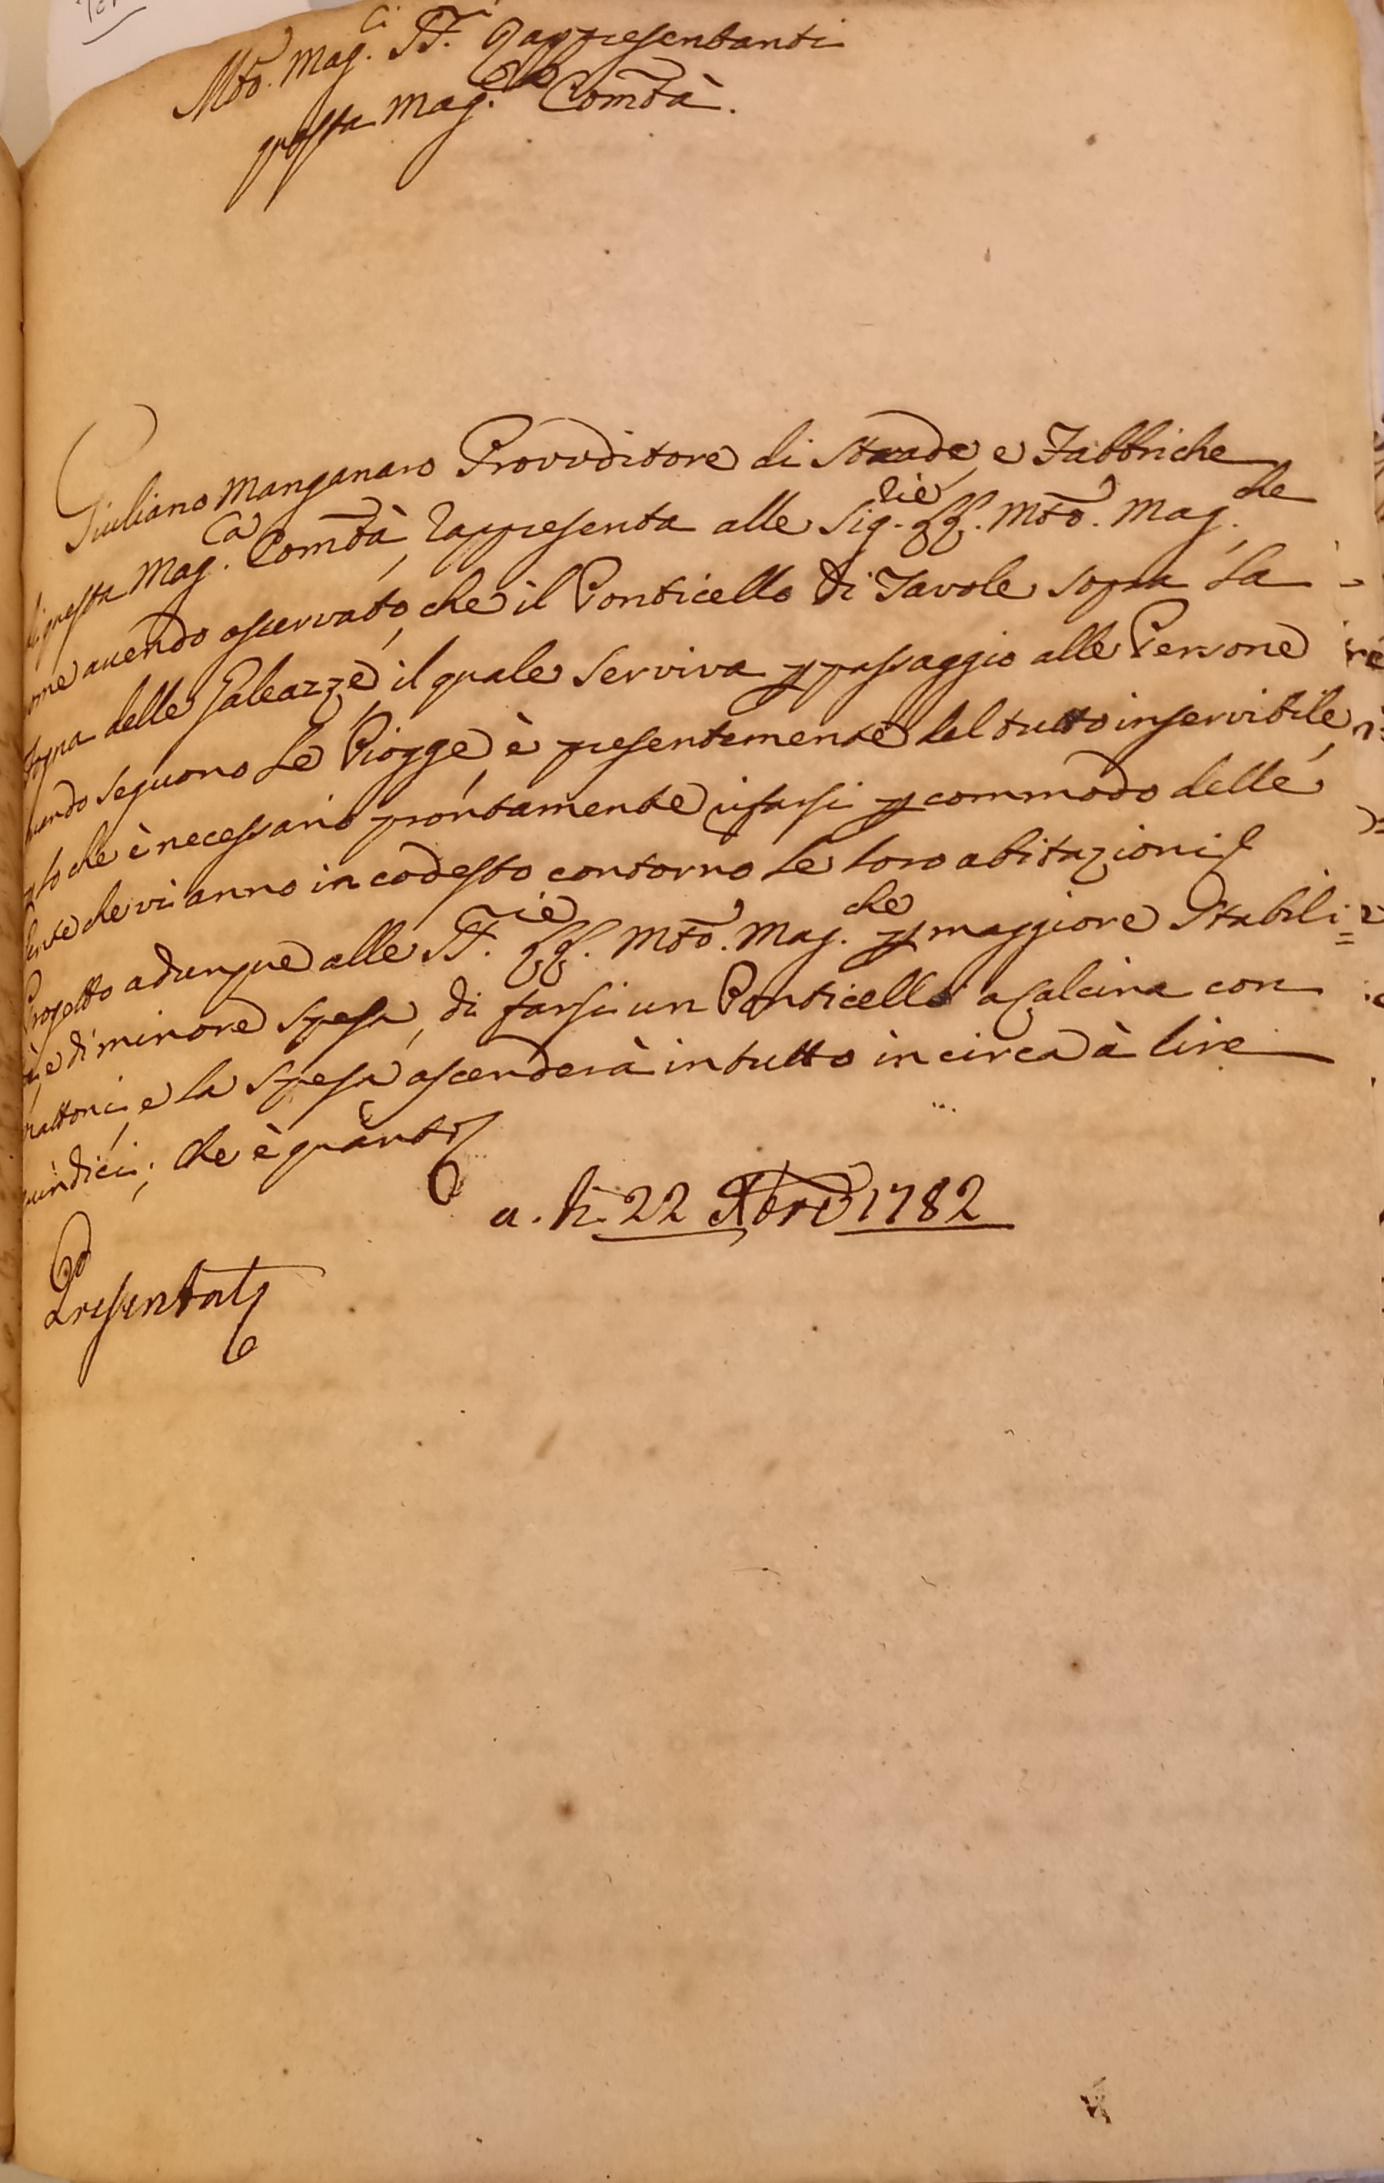 Mtõ. Mag.ci SS.ri Rappresentanti
questa Mag.ca Comtà.
Giuliano Manganaro Provveditore di strade, e Fabbriche
di questa Mag.ca Comtà, rappresenta alle Sig.rie LL. Mtõ. Mag.che
come avendo osservato, che il Ponticello di Tavole sopra la
fogna delle Galeazze, il quale serviva p passaggio alle Persone
quando seguono le Piogge è presentemente del tutto inservibile,
p lo che è necessario prontamente rifarsi p commodo delle
Gente che vi anno in codesto contorno le loro abitazioni;
Progetto adunque alle SS.rie LL. Mtõ. Mag.che p maggiore stabili=
tà, e di minore spesa, di farsi un Ponticello a calcina con
mattoni, e la spesa ascenderà in tutto in circa à lire
quindici; che è quanto
a. li. 22 Xbre 1782
Presentata